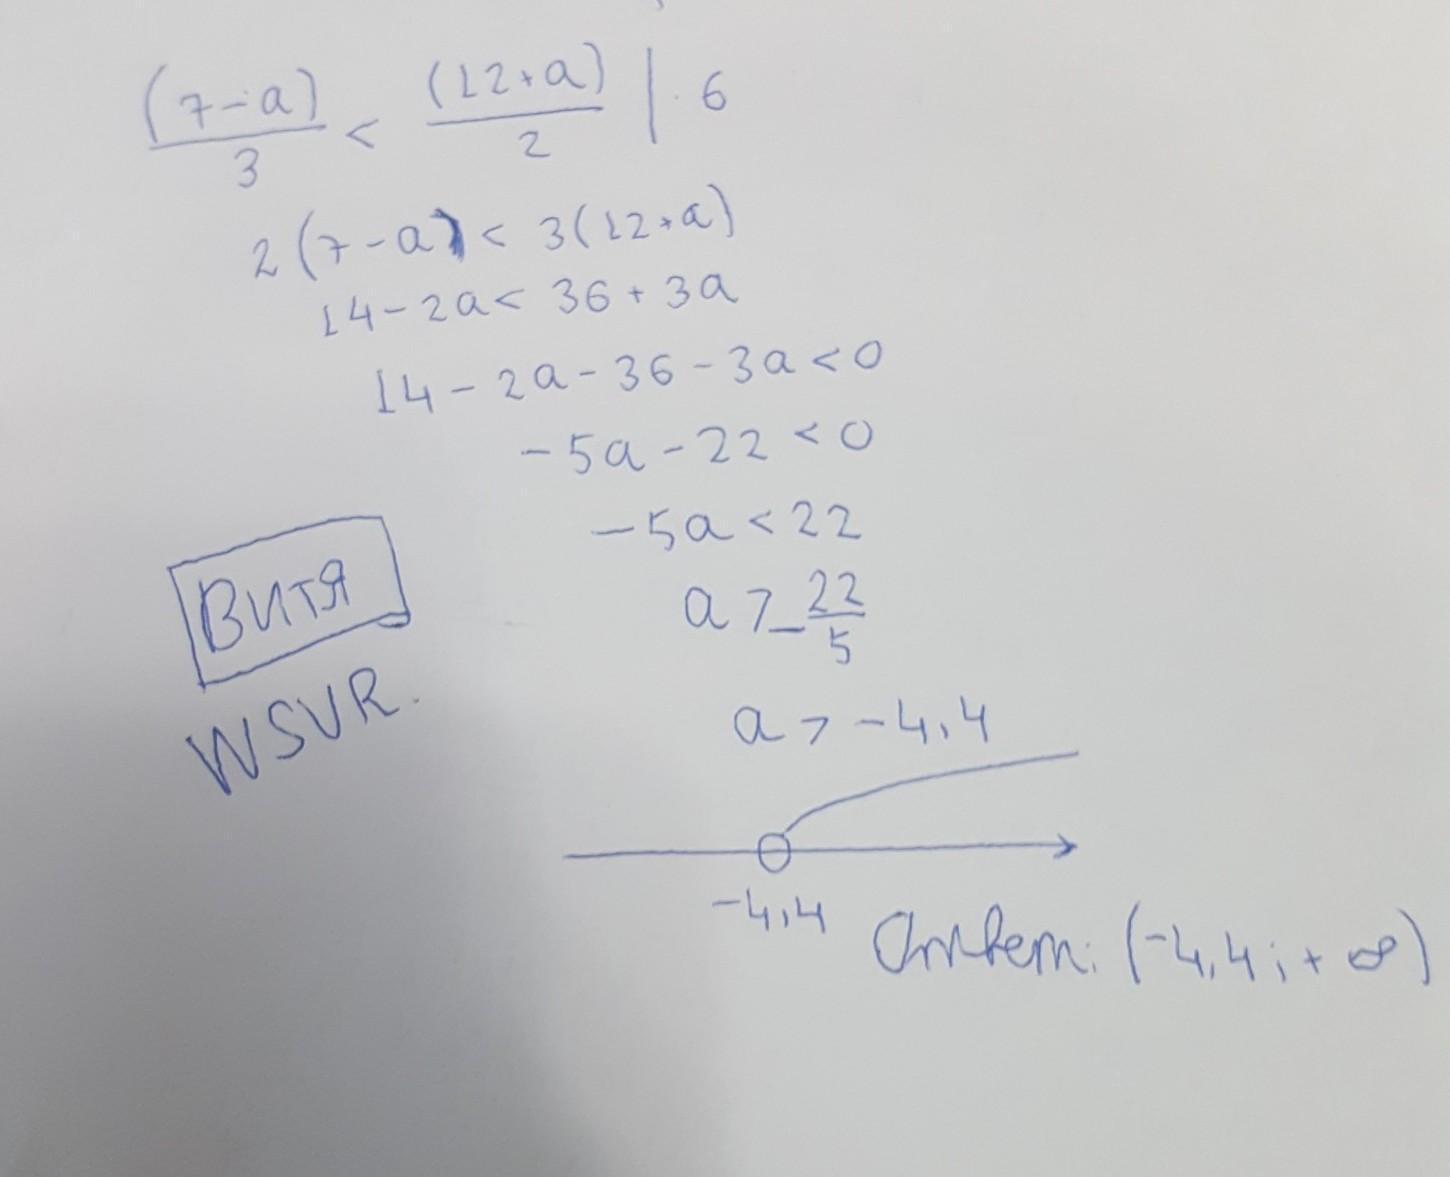 (7-a)/3 < (12+a)/2 | · 6
2(7-a) < 3(12+a)
14-2a < 36+3a
14-2a-36-3a < 0
-5a-22 < 0
-5a < 22
a > -22/5
a > -4,4
-4,4
Ответ: (-4,4; +∞)
Витя
WSVR.